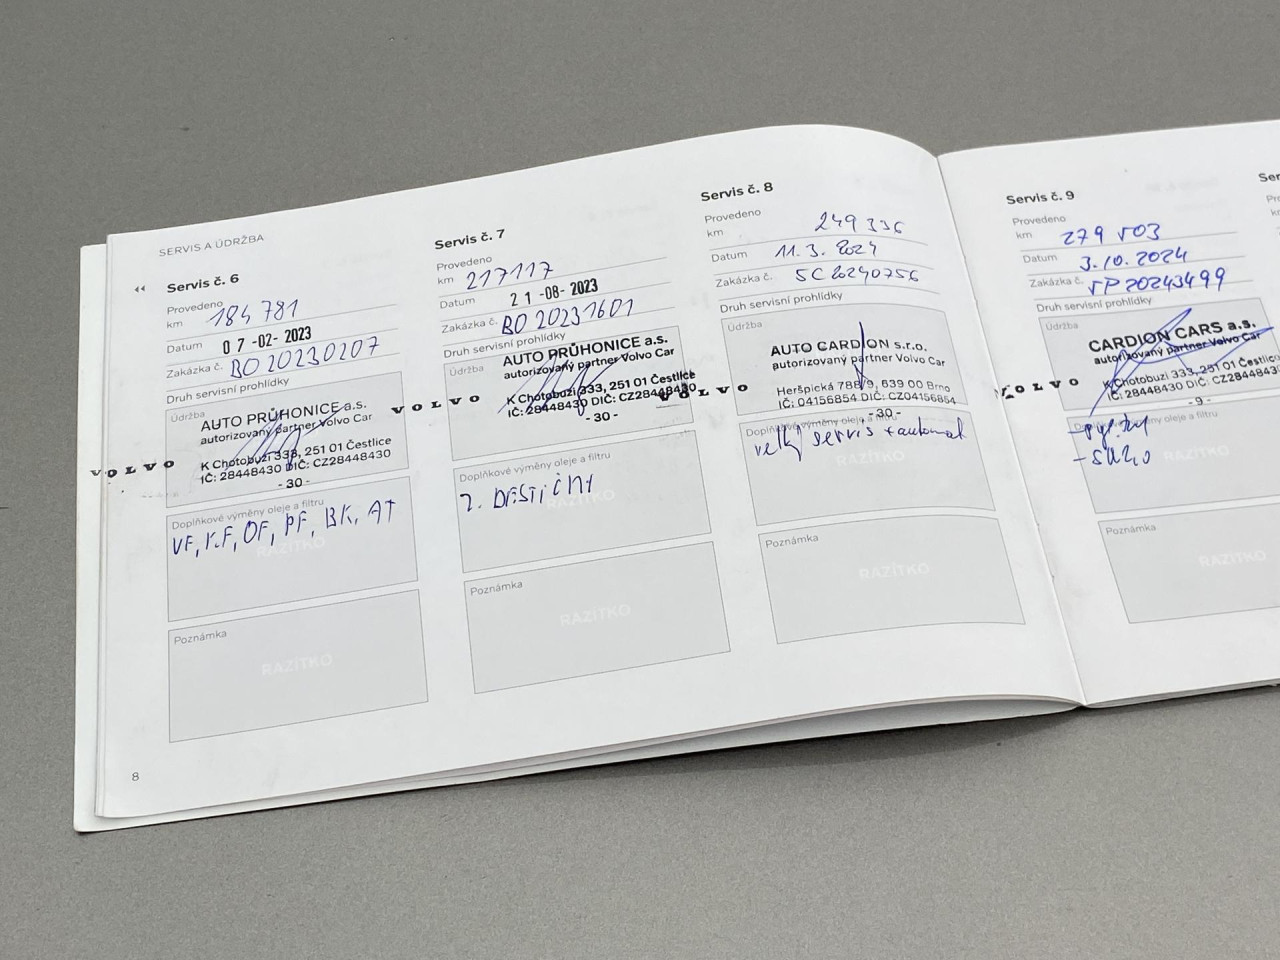 SERVIS A ÚDRŽBA
Servis č. 6
Provedeno
km 184 781
Datum 07 -02- 2023
Zakázka č. BO 20230207
Druh servisní prohlídky
Údržba
AUTO PRŮHONICE a.s.
autorizovaný partner Volvo Car
VOLVO
K Chotobuzi 333, 251 01 Čestlice
IČ: 28448430 DIČ: CZ28448430
- 30 -
Doplňkové výměny oleje a filtru
VF, KF, OF, PF, BK, AT
RAZÍTKO
Poznámka
RAZÍTKO
8
Servis č. 7
Provedeno
km 217117
Datum 21 -08- 2023
Zakázka č. BO 20231601
Druh servisní prohlídky
Údržba
AUTO PRŮHONICE a.s.
autorizovaný partner Volvo Car
VOLVO
K Chotobuzi 333, 251 01 Čestlice
IČ: 28448430 DIČ: CZ28448430
- 30 -
Doplňkové výměny oleje a filtru
RAZÍTKO
Poznámka
RAZÍTKO
Servis č. 8
Provedeno
km 249 336
Datum 11. 3. 2024
Zakázka č. SC20240756
Druh servisní prohlídky
Údržba
AUTO CARDION s.r.o.
autorizovaný partner Volvo Car
VOLVO
Heršpická 788/9, 639 00 Brno
IČ: 04156854 DIČ: CZ04156854
- 30 -
Doplňkové výměny oleje a filtru
velký servis + automat
RAZÍTKO
Poznámka
RAZÍTKO
Servis č. 9
Provedeno
km 279 703
Datum 3. 10. 2024
Zakázka č. VP20243499
Druh servisní prohlídky
Údržba
CARDION CARS a.s.
autorizovaný partner Volvo Car
VOLVO
K Chotobuzi 333, 251 01 Čestlice
IČ: 28448430 DIČ: CZ28448430
- 9 -
Doplňkové výměny oleje a filtru
RAZÍTKO
Poznámka
RAZÍTKO